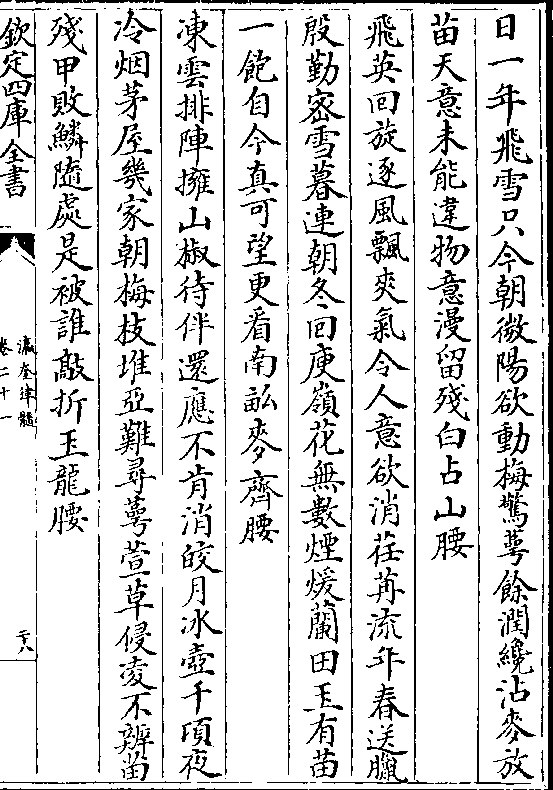 日一年飛雪只今朝微陽欲動梅驚萼餘潤纔沾麥放
苗天意未能違物意漫留殘白占山腰
飛英回旋逐風飄爽氣令人意欲消荏苒流年春送臘
殷勤密雪暮連朝冬回庾嶺花無數煙煖蘭田玉有苗
一飽自今真可望更看南畝麥齊腰
凍雲排陣擁山椒待伴還應不肯消皎月冰壺千頃夜
冷烟茅屋幾家朝梅枝堆亞難尋萼萱草侵凌不辨苗
殘甲敗鱗隨處是被誰敲折玉龍腰
欽定四庫全書
瀛奎律髓
卷二十一
二十八